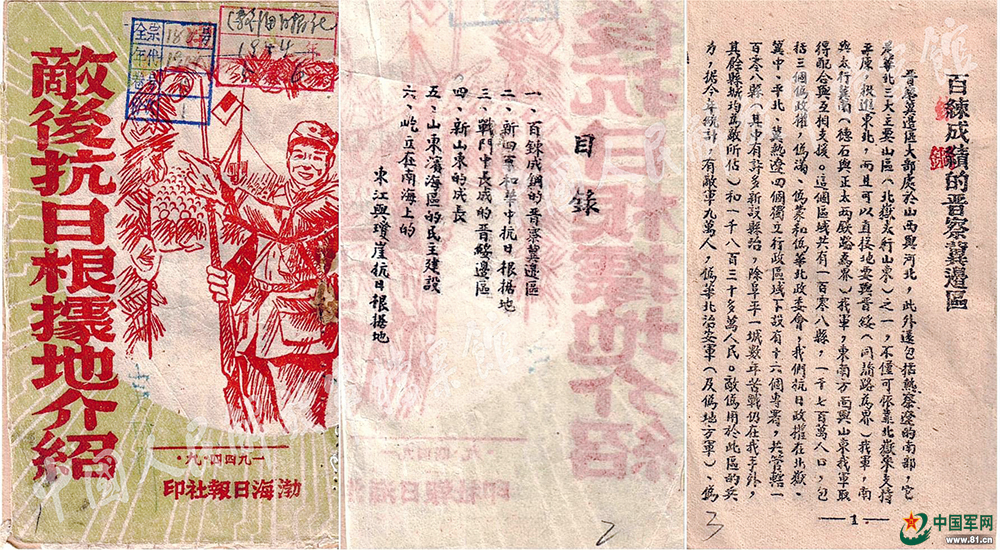 敵後抗日根據地介紹
一九四四·九·
渤海日報社印
1
目錄
一、百鍊成鋼的晉察冀邊區
二、新四軍和華中抗日根據地
三、戰鬥中長成的晉綏邊區
四、新山東的成長
五、山東濱海區的民主建設
六、屹立在南海上的
東江與瓊崖抗日根據地
2
百練成績的晉察冀邊區
晉察冀邊區大部处於山西與河北，此外還包括熱察遼的南部，它
是華北三大主要山區（北嶽太行山東）之一，不僅可依靠北嶽來支持
平原，挺進東北，而且可以直接地要與晉綏（同蒲路為界）我軍，南
與太行冀南（德石與正太兩鉄路為界）我軍，東南方面與山東我軍取
得配合與互相支援。這個區域共有一百零八縣，一千七百萬人口，包
括三個偽政權，偽滿、偽蒙和偽華北政委會，我們抗日政權在北嶽、
冀中、平北、冀熱遼四個獨立行政區域下設有十六個專署，共管轄一
百零八縣（其中有許多新設縣治，除阜平一城數年苦戰仍在我手外，
其餘縣城均為敵所佔）和一千八百三十多萬人民。敵偽用於此區的兵
力，據今年統計，有敵軍九萬人，偽華北治安軍（及偽地方軍）、偽
—1—
3
中国军网
www.81.cn